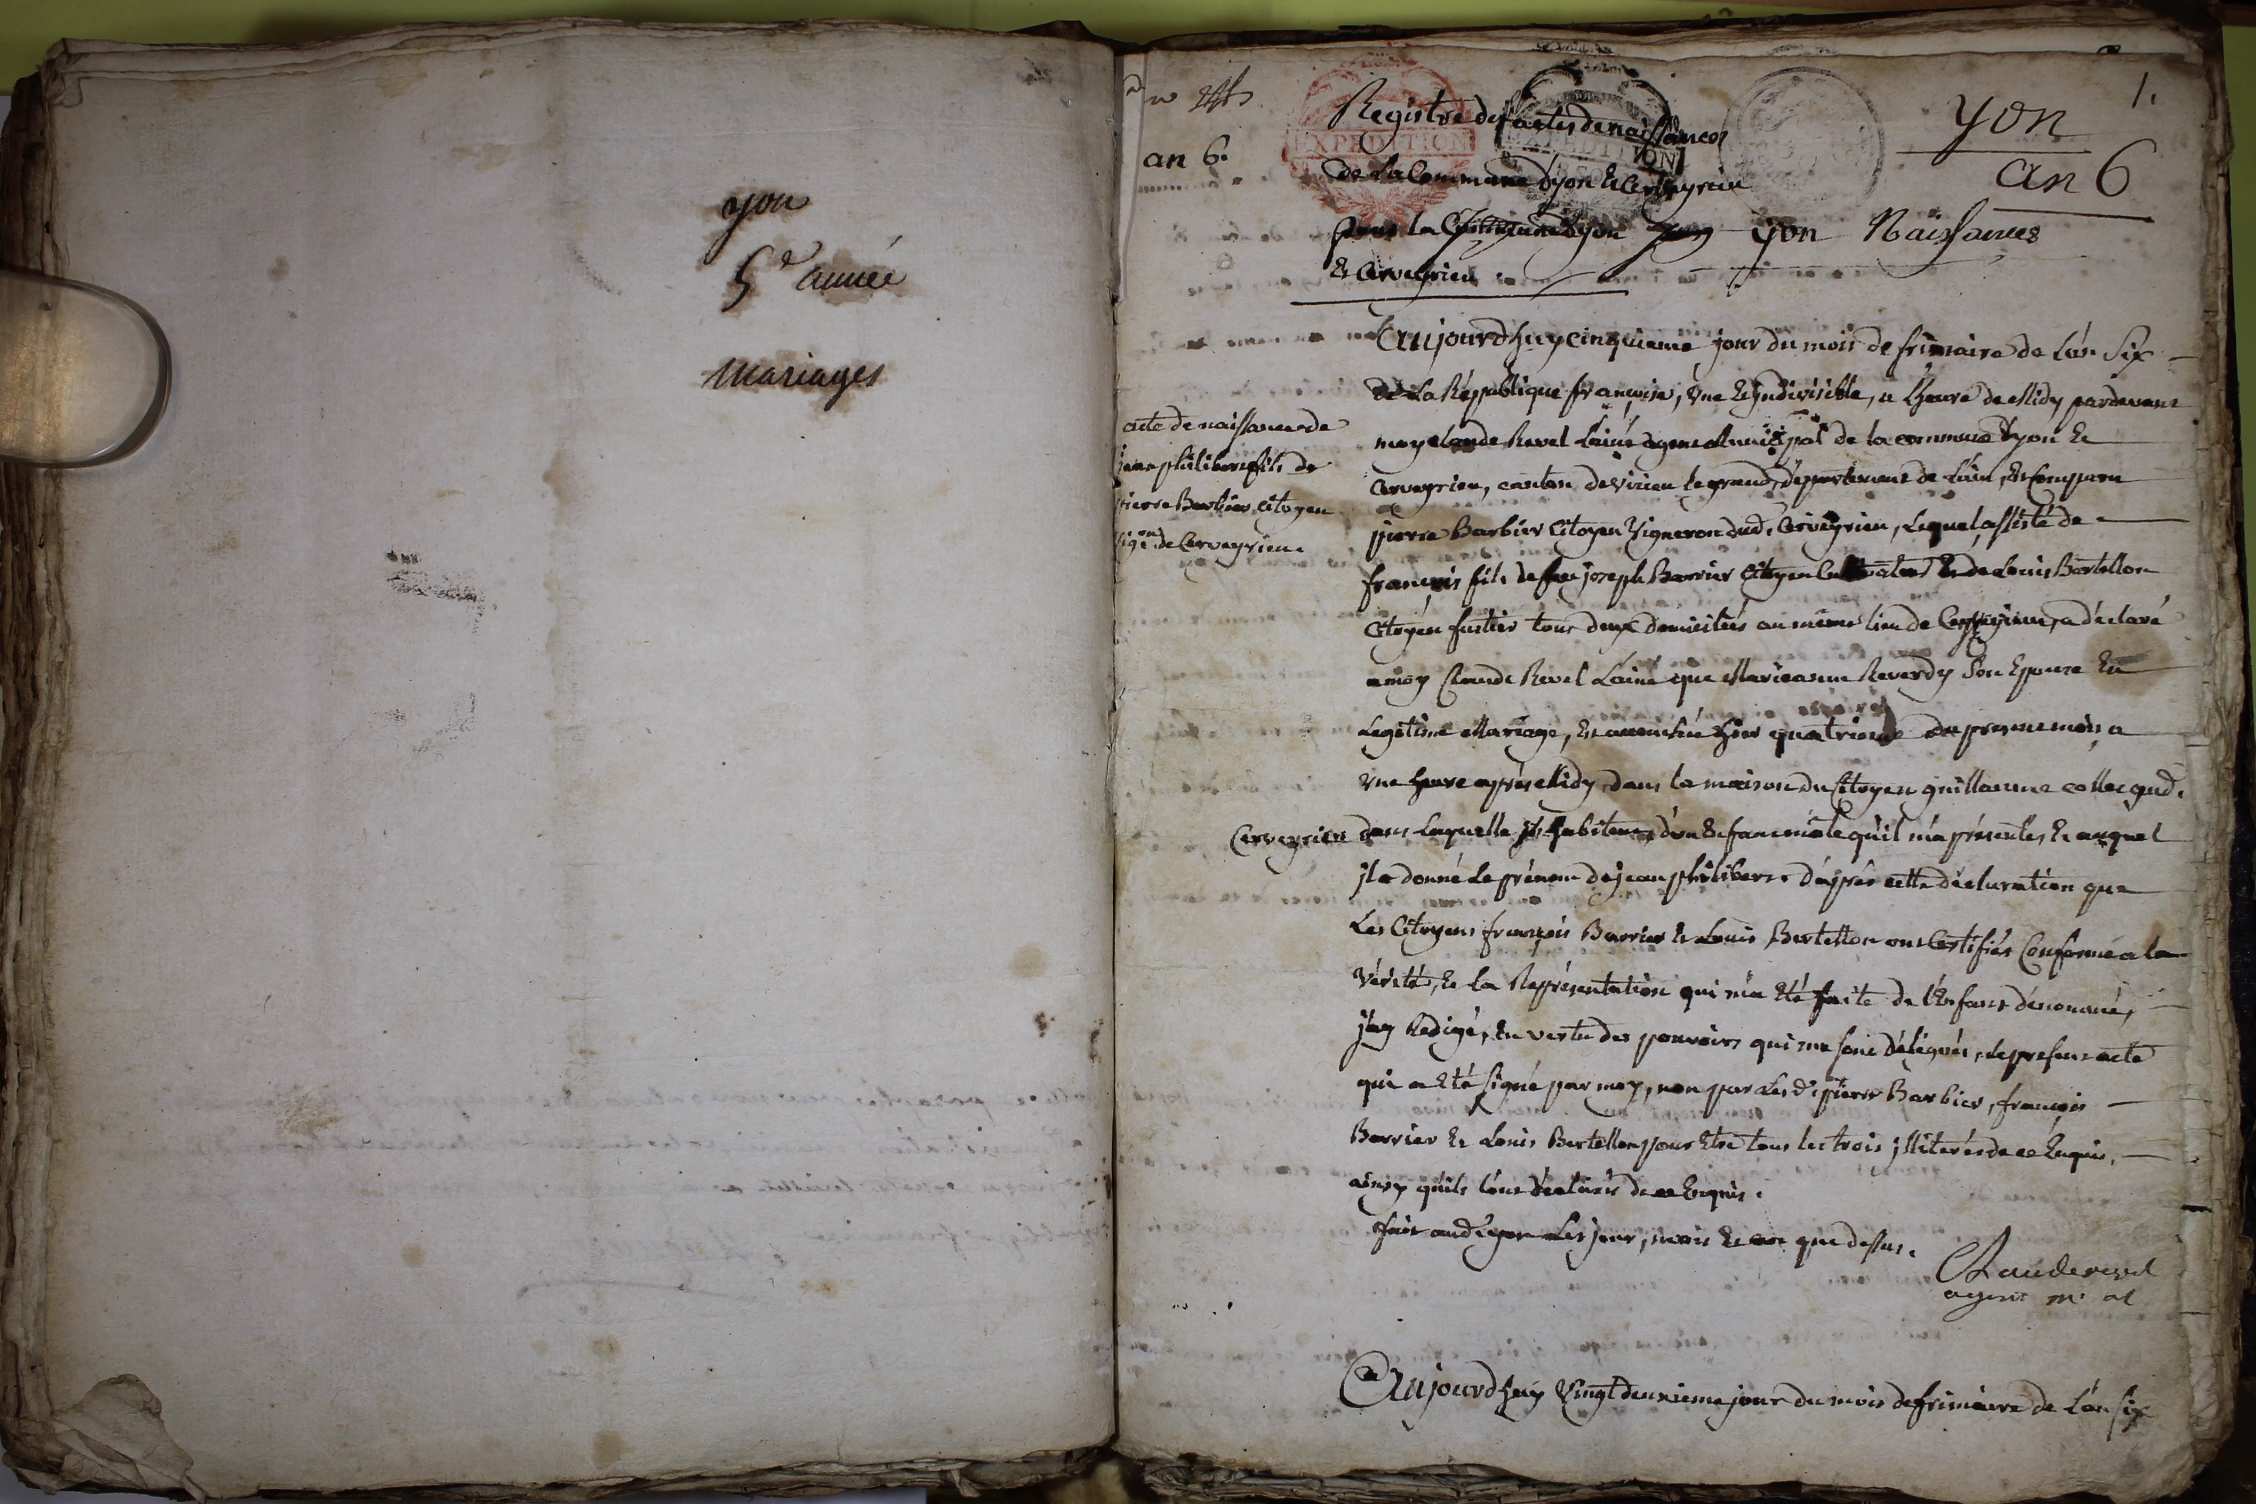 yon
5e année
Mariages
an 6.
1.
yon
an 6
Registre des actes de naissances
de la Commune d'yon & Cerveyrieu
pour la Commune d'yon
yon Naissances
& Cerveyrieu
EXPEDITION
acte de naissance de
jean philibert fils de
pierre Barbier Citoyen
vigon. de Cerveyrieu.
Aujourd'huy cinquieme jour du mois de frimaire de L'an Six
de La République françoise, une & Indivisible, a l'heure de Midy pardevant
moy Claude Revel L'ainé agent Municipal de la commune d'yon &
Cerveyrieu, canton de virieu le grand, département de L'ain, Est Comparu
pierre Barbier Citoyen Vigneron dud. Cerveyrieu, Lequel assisté de
françois fils de feu joseph Barrier Citoyen Cultivateur & de Louis Bertellon
Citoyen fustier tous deux domiciliés au même lieu de Cerveyrieu, a déclaré
a moy Claude Revel L'ainé que Marieanne Reverdy Son Epouse En
Legitime Mariage, est accouchée hier quatrieme du present mois, a
une heure après Midy, dans la maison du Citoyen guillaume collet aud.
Cerveyrieu dans Laquelle ils habitent, d'un Enfant mâle qu'il m'a présenté, & auquel
il a donné Le prénom de jean philibert. d'après cette déclaration que
Les Citoyens françois Barrier & Louis Bertellon ont Certifiés Conforme a la
Vérité, & la Représentation qui m'a Eté faite de l'Enfant dénommé,
j'ay Redigé, En vertu des pouvoirs qui me sont délégués, le present acte
qui a Eté signé par moy, non par Lesd. pierre Barbier, françois
Barrier & Louis Bertellon pour Etre tous les trois illiterés de ce Enquis,
ainsy qu'ils l'ont déclarés de ce Enquis.
fait aud. yon Les jour, mois & an que dessus.
Claude revel
agent m. al
Aujourd'huy Vingt deuxieme jour du mois de frimaire de L'an Six